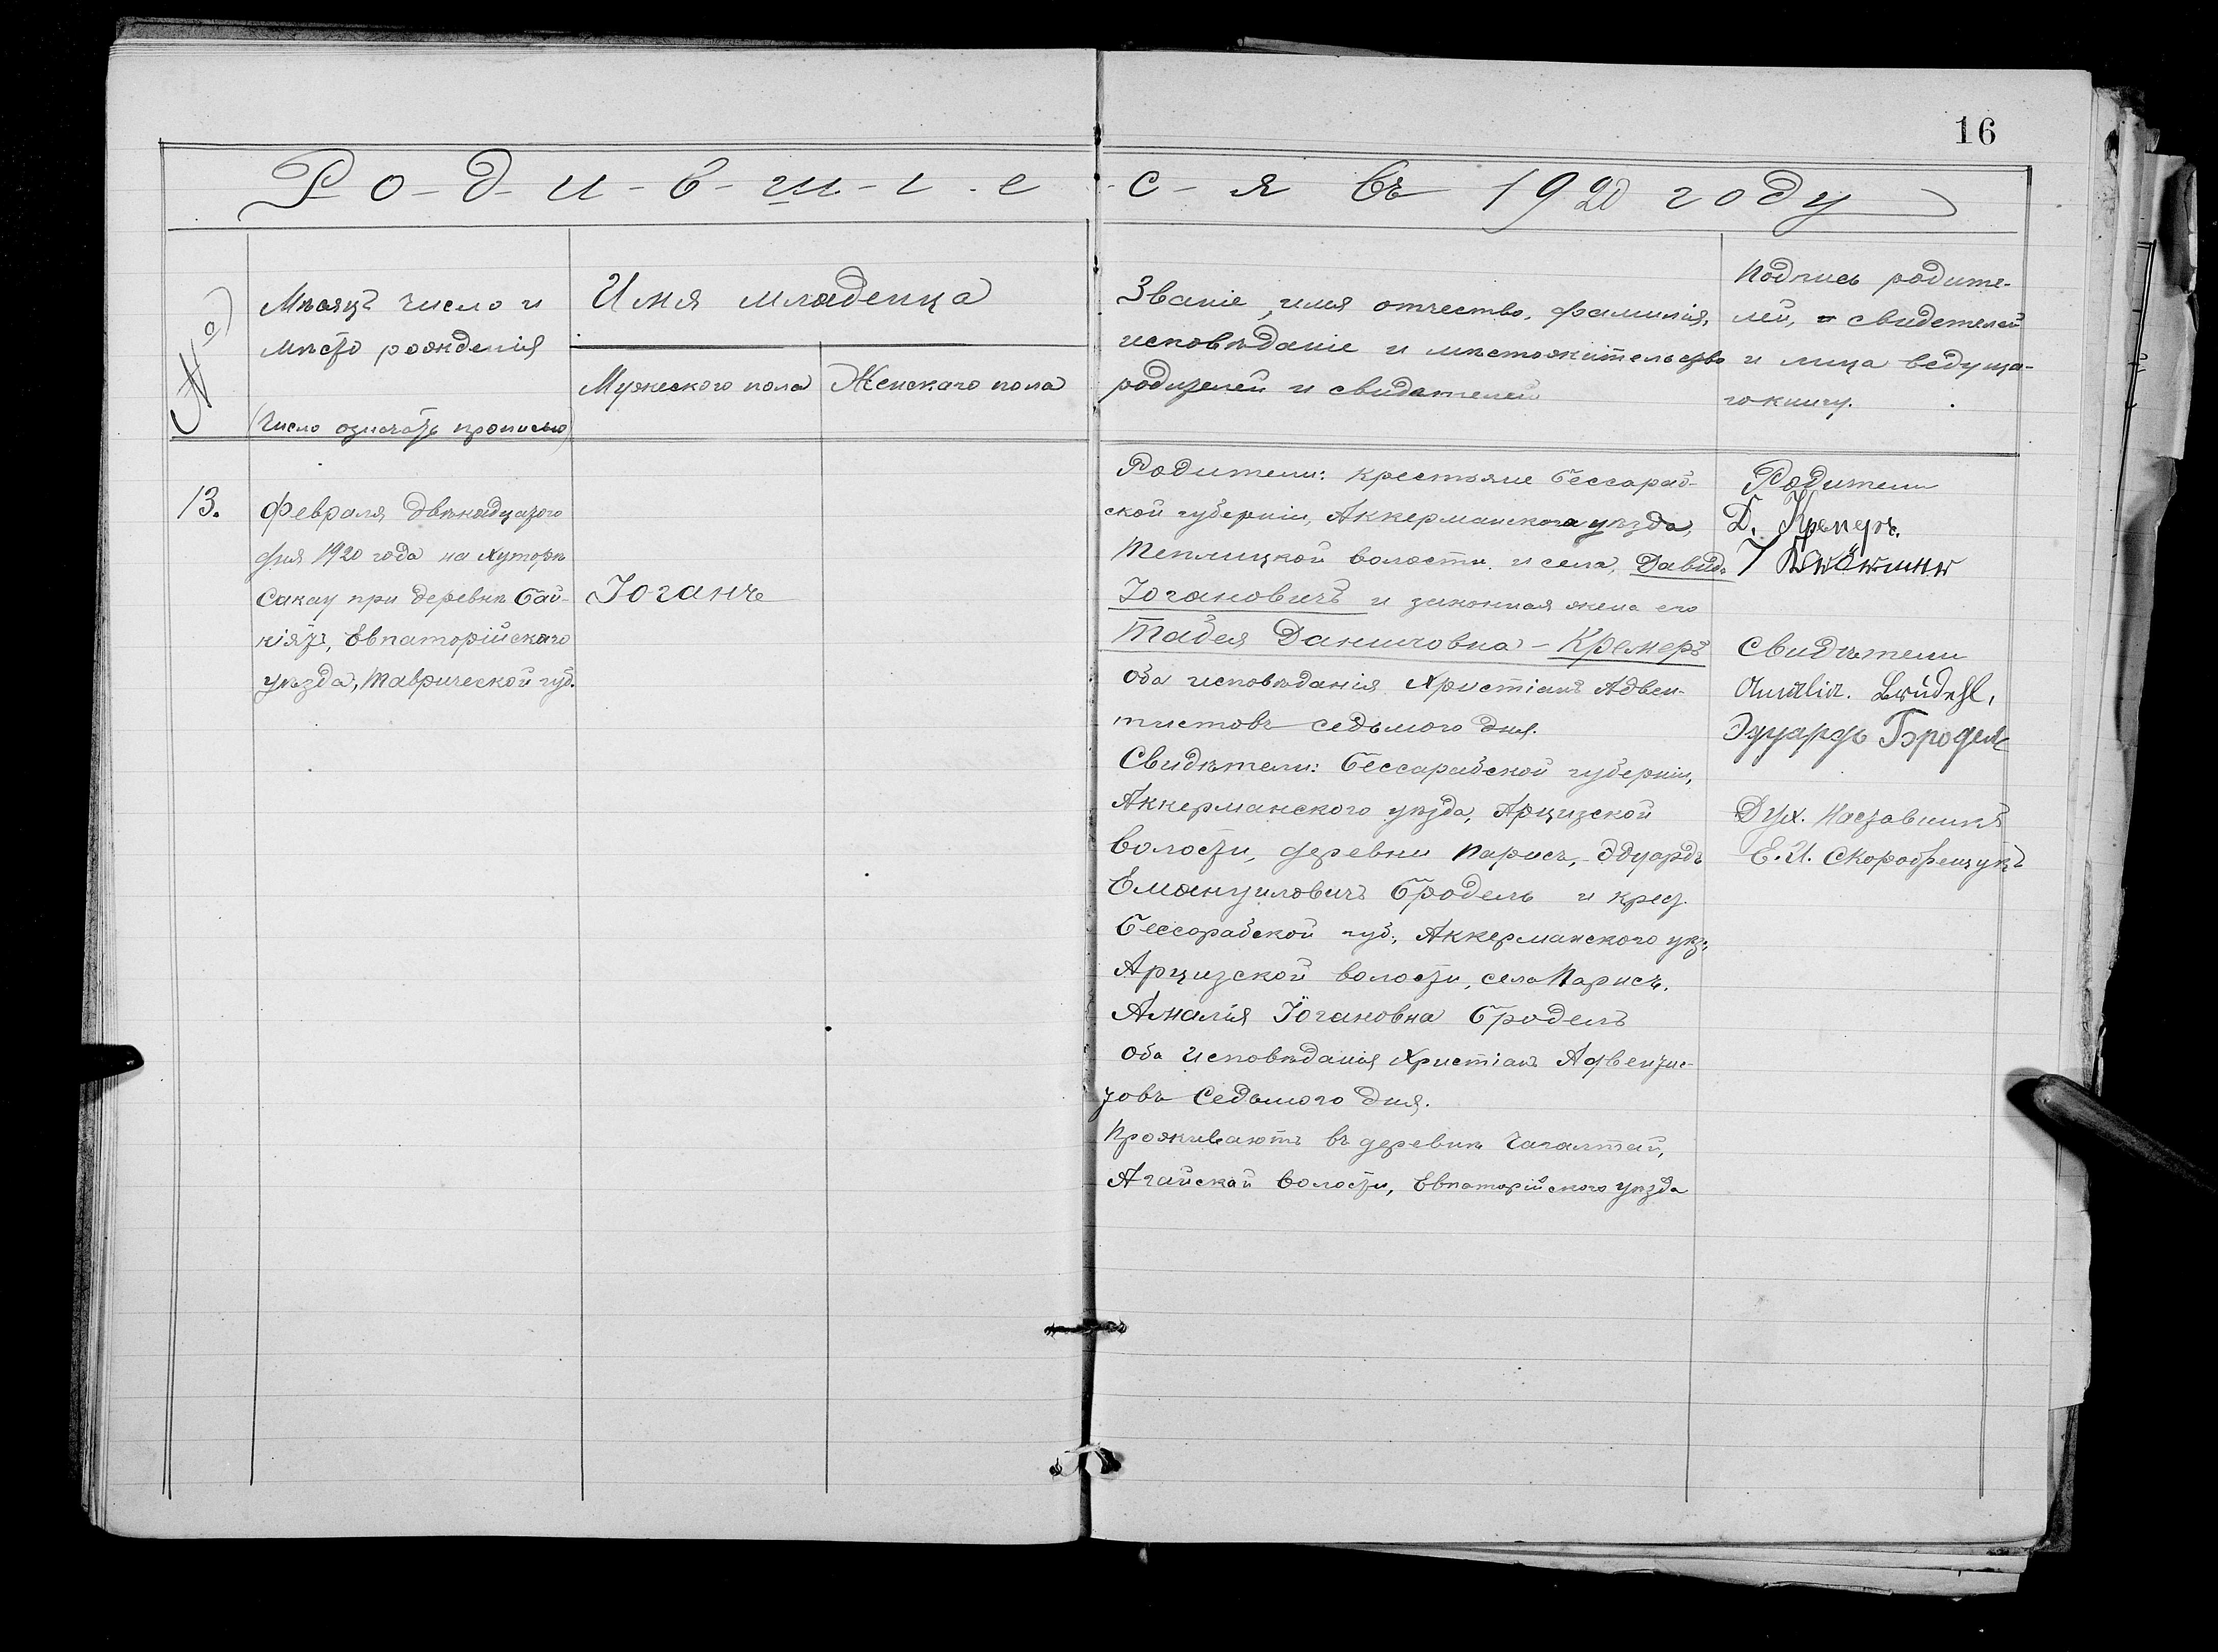 16
Р-о-д-и-в-ш-і-е-с-я въ 1920 году
№
Мѣсяцъ число и
мѣсто рожденія
(Число означать прописью)
Имя младенца
Мужеского пола
Женскаго пола
Званіе, имя отчество, фамилія,
исповѣданіе и мѣстожительство
родителей и свидетелей
Подпись родите-
лей, свидетелей
и лица ведуща-
го книгу.
13.
Февраля двѣнадцатого
дня 1920 года на хуторѣ
Сакау при деревнѣ Бай-
кіятъ, Евпаторійскаго
уѣзда, Таврической губ.
Іоганъ
Родители: крестьяне Бессараб-
ской губерніи, Аккерманскога уѣзда,
Теплицкой волости и села, Давидъ
Іогановичъ и законная жена его
Данииловна - Кремеръ
Оба исповѣданія Христіанъ Адвен-
тистовъ седьмого дня.
Свидѣтели: Бессарабской губерніи,
Аккерманского уѣзда, Арцизской
волости, деревни Парисъ, Эдуардъ
Емануиловичъ Бродель и крест.
Бессарабской губ., Аккерманского уѣз.
Арцизской волости, села Парисъ.
Амалія Іогановна Бродель
Оба исповѣданія Христіанъ Адвентис-
товъ Седьмого дня.
Проживаютъ въ деревнѣ Чагалтай,
Агайской волости, Евпаторійского уѣзда
Родители
Д. Кремеръ.
Свидѣтели
Amalia.
Эдуардъ Бродель
Дух. Наставникъ
Е. И.